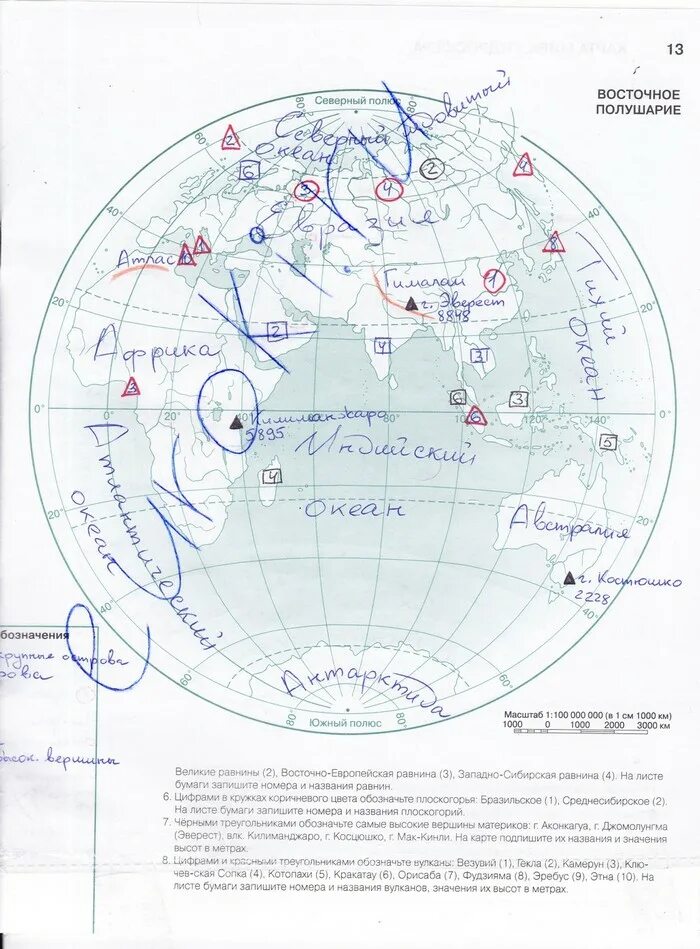 13
ВОСТОЧНОЕ
ПОЛУШАРИЕ
Северный полюс
80°
80°
60°
60°
40°
40°
20°
20°
0°
20°
40°
120°
140°
0°
20°
20°
40°
40°
60°
60°
80°
80°
Южный полюс
Северный Ледовитый
океан
2
6
3
4
2
4
Евразия
Атлас
10
1
8
Гималаи
1
г. Эверест
8848
Тихий
океан
2
4
3
Африка
3
6
3
6
5
Килиманджаро
5895
Индийский
океан
4
Атлантический
океан
Австралия
г. Костюшко
2228
Антарктида
бозначения
крупные острова
рова
высок. вершины
Масштаб 1:100 000 000 (в 1 см 1000 км)
1000 0 1000 2000 3000 км
Великие равнины (2), Восточно-Европейская равнина (3), Западно-Сибирская равнина (4). На листе
бумаги запишите номера и названия равнин.
6. Цифрами в кружках коричневого цвета обозначьте плоскогорья: Бразильское (1), Среднесибирское (2).
На листе бумаги запишите номера и названия плоскогорий.
7. Чёрными треугольниками обозначьте самые высокие вершины материков: г. Аконкагуа, г. Джомолунгма
(Эверест), влк. Килиманджаро, г. Косцюшко, г. Мак-Кинли. На карте подпишите их названия и значения
высот в метрах.
8. Цифрами и красными треугольниками обозначьте вулканы: Везувий (1), Гекла (2), Камерун (3), Клю-
чев-ская Сопка (4), Котопахи (5), Кракатау (6), Орисаба (7), Фудзияма (8), Эребус (9), Этна (10). На
листе бумаги запишите номера и названия вулканов, значения их высот в метрах.